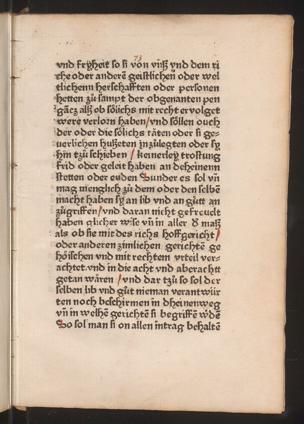 73
vnd fryheit so si von vnß vnd dem ri
che oder anderē geistlichen oder wel
tlichenn herschafften oder personen
hetten zů sampt der obgenanten pen
gācz alß ob sölichs mit recht er volget
were verlorn haben / vnd söllen ouch
der oder die sölichs täten oder si ge-
uerlichen hußeten in zůlegten oder sy
hin tzů schieben / keinerley trostung
frid oder geleit haben an deheinenn
stetten oder enden Sunder es sol vn̄
mag menglich zů dem oder den selbē
macht haben sy an lib vnd an gůtt an
zůgriffen / vnd daran nicht gefreuelt
haben glicher wise vn̄ in aller d maß
als ob sie mit des richs hoffgericht /
oder anderen zimlichen gerichtē ge
höischen vnd mit rechtem vrteil ver-
achtet vnd in die acht vnd aberachtt
getan wären / vnd dar tzů so sol der
selben lib vnd gůt nieman verantwür
ten noch beschirmen in dheinenweg
vn̄ in welhē gerichtē si begriffē wdē
So sol man si on allen intrag behaltē